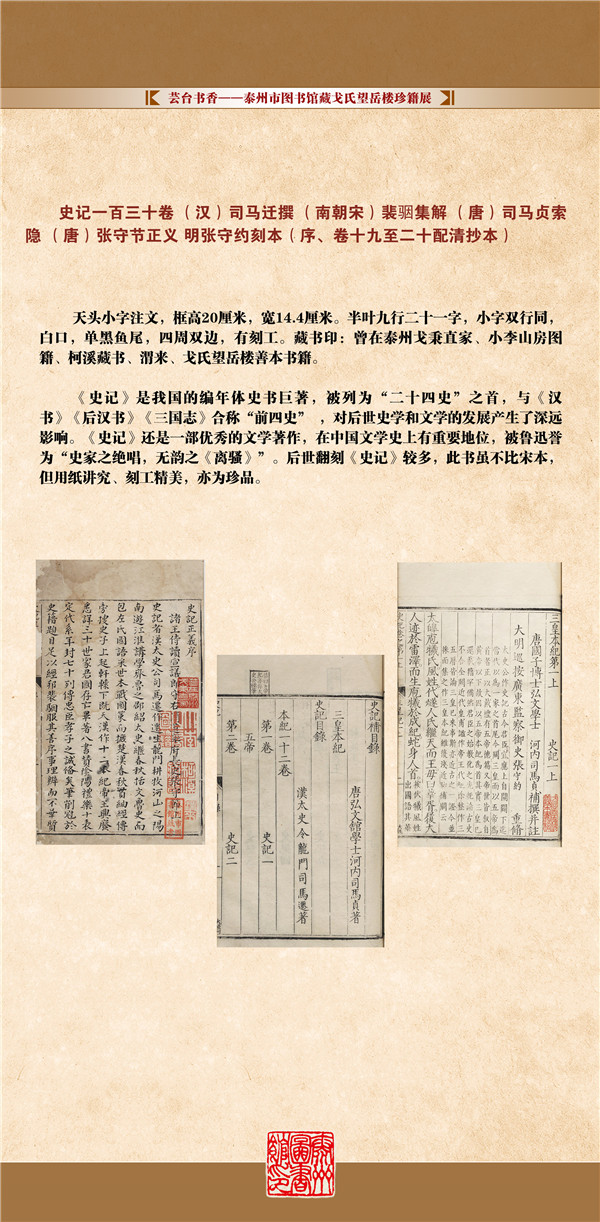 芸台书香——泰州市图书馆藏戈氏望岳楼珍籍展
史记一百三十卷 （汉）司马迁撰 （南朝宋）裴骃集解 （唐）司马贞索
隐 （唐）张守节正义 明张守约刻本（序、卷十九至二十配清抄本）
天头小字注文，框高20厘米，宽14.4厘米。半叶九行二十一字，小字双行同，
白口，单黑鱼尾，四周双边，有刻工。藏书印：曾在泰州戈秉直家、小李山房图
籍、柯溪藏书、渭来、戈氏望岳楼善本书籍。
《史记》是我国的编年体史书巨著，被列为“二十四史”之首，与《汉
书》《后汉书》《三国志》合称“前四史” ，对后世史学和文学的发展产生了深远
影响。《史记》还是一部优秀的文学著作，在中国文学史上有重要地位，被鲁迅誉
为“史家之绝唱，无韵之《离骚》”。后世翻刻《史记》较多，此书虽不比宋本，
但用纸讲究、刻工精美，亦为珍品。
史記正義序
史記者漢太史公司馬遷作遷生龍門耕牧河山之陽
南遊江淮講學齊魯之郡紹太史繼春秋括文魯史而
包左氏國語采世本戰國策而摭楚漢春秋貫紬經傳
旁搜史子上起軒轅下既天漢作十二本紀帝王興廢
悉詳三十世家君國存亡畢著八書贊陰陽禮樂十表
定代系年封七十列傳忠臣孝子之誠備矣筆削冠於
史籍題目足以經邦裴駰服其善序事理辯而不華質
史記補目錄
唐弘文館學士河内司馬貞著
三皇本紀
史記目錄
漢太史令龍門司馬遷著
本紀一十二卷
第一卷 史記一
五帝
第二卷 史記二
三皇本紀第一上 史記一上
唐國子博士弘文學士 河内司馬貞補撰并註
大明巡按廣東監察御史張守約 重修
太皞庖犧氏風姓代燧人氏繼天而王母曰華胥履大
人迹於雷澤而生庖犧於成紀蛇身人首
泰州
圖書
館印